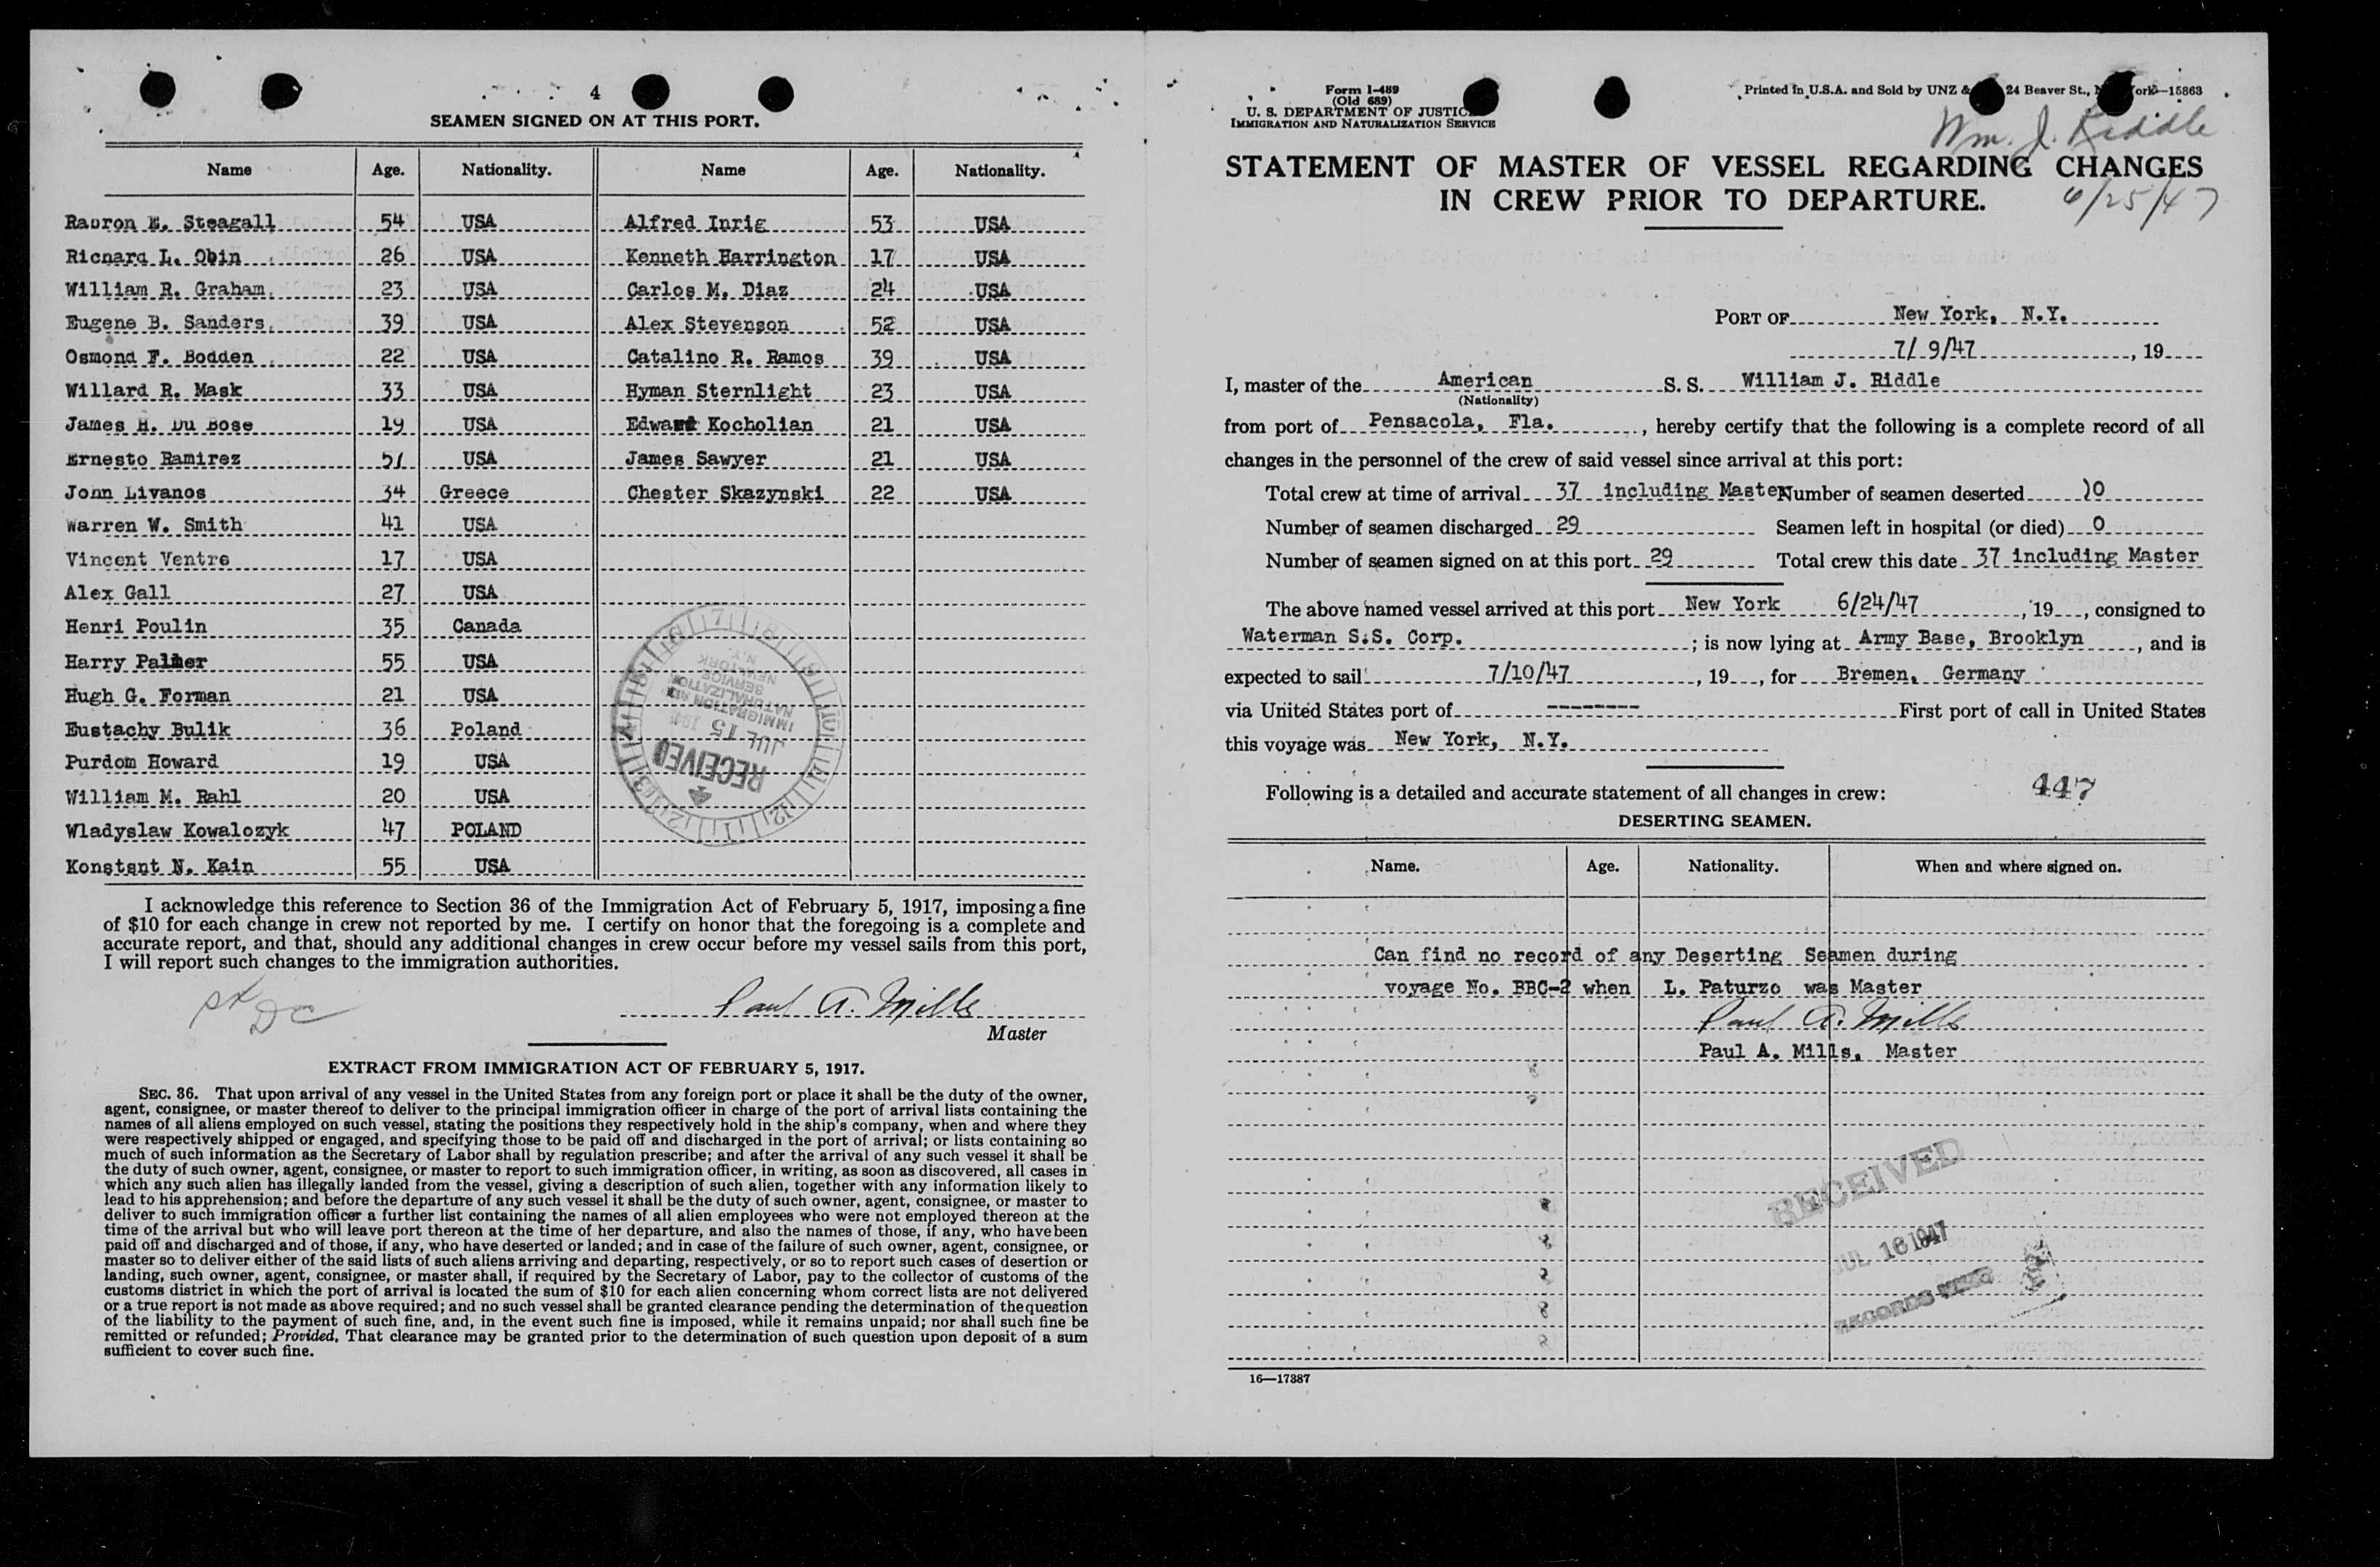 4
SEAMEN SIGNED ON AT THIS PORT.
Name Age. Nationality. Name Age. Nationality.
E. Steagall 54 USA Alfred Inrig 53 USA
Ricnard L. Obin 26 USA Kenneth Harrington 17 USA
William R. Graham 23 USA Carlos M. Diaz 24 USA
Eugene B. Sanders 39 USA Alex Stevenson 52 USA
Osmond F. Bodden 22 USA Catalino R. Ramos 39 USA
Willard R. Mask 33 USA Hyman Sternlight 23 USA
James H. Du Bose 19 USA Edward Kocholian 21 USA
Ernesto Ramirez USA James Sawyer 21 USA
John Livanos 34 Greece Chester Skazynski 22 USA
Warren W. Smith 41 USA
Vincent Ventre 17 USA
Alex Gall 27 USA
Henri Poulin 35 Canada
Harry Palmer 55 USA
Hugh G. Forman 21 USA
Eustachy Bulik 36 Poland
Purdom Howard 19 USA
William M. Rahl 20 USA
Wladyslaw Kowalozyk 47 POLAND
Konstant N. Kain 55 USA
IMMIGRATION AND
NATURALIZATION
SERVICE
NEW YORK
N.Y.
JUL 15
RECEIVED
I acknowledge this reference to Section 36 of the Immigration Act of February 5, 1917, imposing a fine
of $10 for each change in crew not reported by me. I certify on honor that the foregoing is a complete and
accurate report, and that, should any additional changes in crew occur before my vessel sails from this port,
I will report such changes to the immigration authorities.
Paul A. Mills
Master
EXTRACT FROM IMMIGRATION ACT OF FEBRUARY 5, 1917.
SEC. 36. That upon arrival of any vessel in the United States from any foreign port or place it shall be the duty of the owner,
agent, consignee, or master thereof to deliver to the principal immigration officer in charge of the port of arrival lists containing the
names of all aliens employed on such vessel, stating the positions they respectively hold in the ship's company, when and where they
were respectively shipped or engaged, and specifying those to be paid off and discharged in the port of arrival; or lists containing so
much of such information as the Secretary of Labor shall by regulation prescribe; and after the arrival of any such vessel it shall be
the duty of such owner, agent, consignee, or master to report to such immigration officer, in writing, as soon as discovered, all cases in
which any such alien has illegally landed from the vessel, giving a description of such alien, together with any information likely to
lead to his apprehension; and before the departure of any such vessel it shall be the duty of such owner, agent, consignee, or master to
deliver to such immigration officer a further list containing the names of all alien employees who were not employed thereon at the
time of the arrival but who will leave port thereon at the time of her departure, and also the names of those, if any, who have been
paid off and discharged and of those, if any, who have deserted or landed; and in case of the failure of such owner, agent, consignee, or
master so to deliver either of the said lists of such aliens arriving and departing, respectively, or so to report such cases of desertion or
landing, such owner, agent, consignee, or master shall, if required by the Secretary of Labor, pay to the collector of customs of the
customs district in which the port of arrival is located the sum of $10 for each alien concerning whom correct lists are not delivered
or a true report is not made as above required; and no such vessel shall be granted clearance pending the determination of the question
of the liability to the payment of such fine, and, in the event such fine is imposed, while it remains unpaid; nor shall such fine be
remitted or refunded; Provided, That clearance may be granted prior to the determination of such question upon deposit of a sum
sufficient to cover such fine.
Form I-489
(Old 689)
U. S. DEPARTMENT OF JUSTICE
IMMIGRATION AND NATURALIZATION SERVICE
Printed in U.S.A. and Sold by UNZ & 24 Beaver St., York—15863
Wm. J. Riddle
STATEMENT OF MASTER OF VESSEL REGARDING CHANGES
IN CREW PRIOR TO DEPARTURE.
6/25/47
PORT OF New York, N.Y.
7/ 9/47, 19
I, master of the American S. S. William J. Riddle
(Nationality)
from port of Pensacola, Fla., hereby certify that the following is a complete record of all
changes in the personnel of the crew of said vessel since arrival at this port:
Total crew at time of arrival 37 including Master Number of seamen deserted 0
Number of seamen discharged 29 Seamen left in hospital (or died) 0
Number of seamen signed on at this port 29 Total crew this date 37 including Master
The above named vessel arrived at this port New York 6/24/47, 19, consigned to
Waterman S.S. Corp.; is now lying at Army Base, Brooklyn, and is
expected to sail 7/10/47, 19, for Bremen, Germany
via United States port of -------- First port of call in United States
this voyage was New York, N.Y.
Following is a detailed and accurate statement of all changes in crew: 447
DESERTING SEAMEN.
Name. Age. Nationality. When and where signed on.
Can find no record of any Deserting Seamen during
voyage No. BBC-2 when L. Paturzo was Master
Paul A. Mills
Paul A. Mills, Master
RECEIVED
JUL 16 1947
16—17387